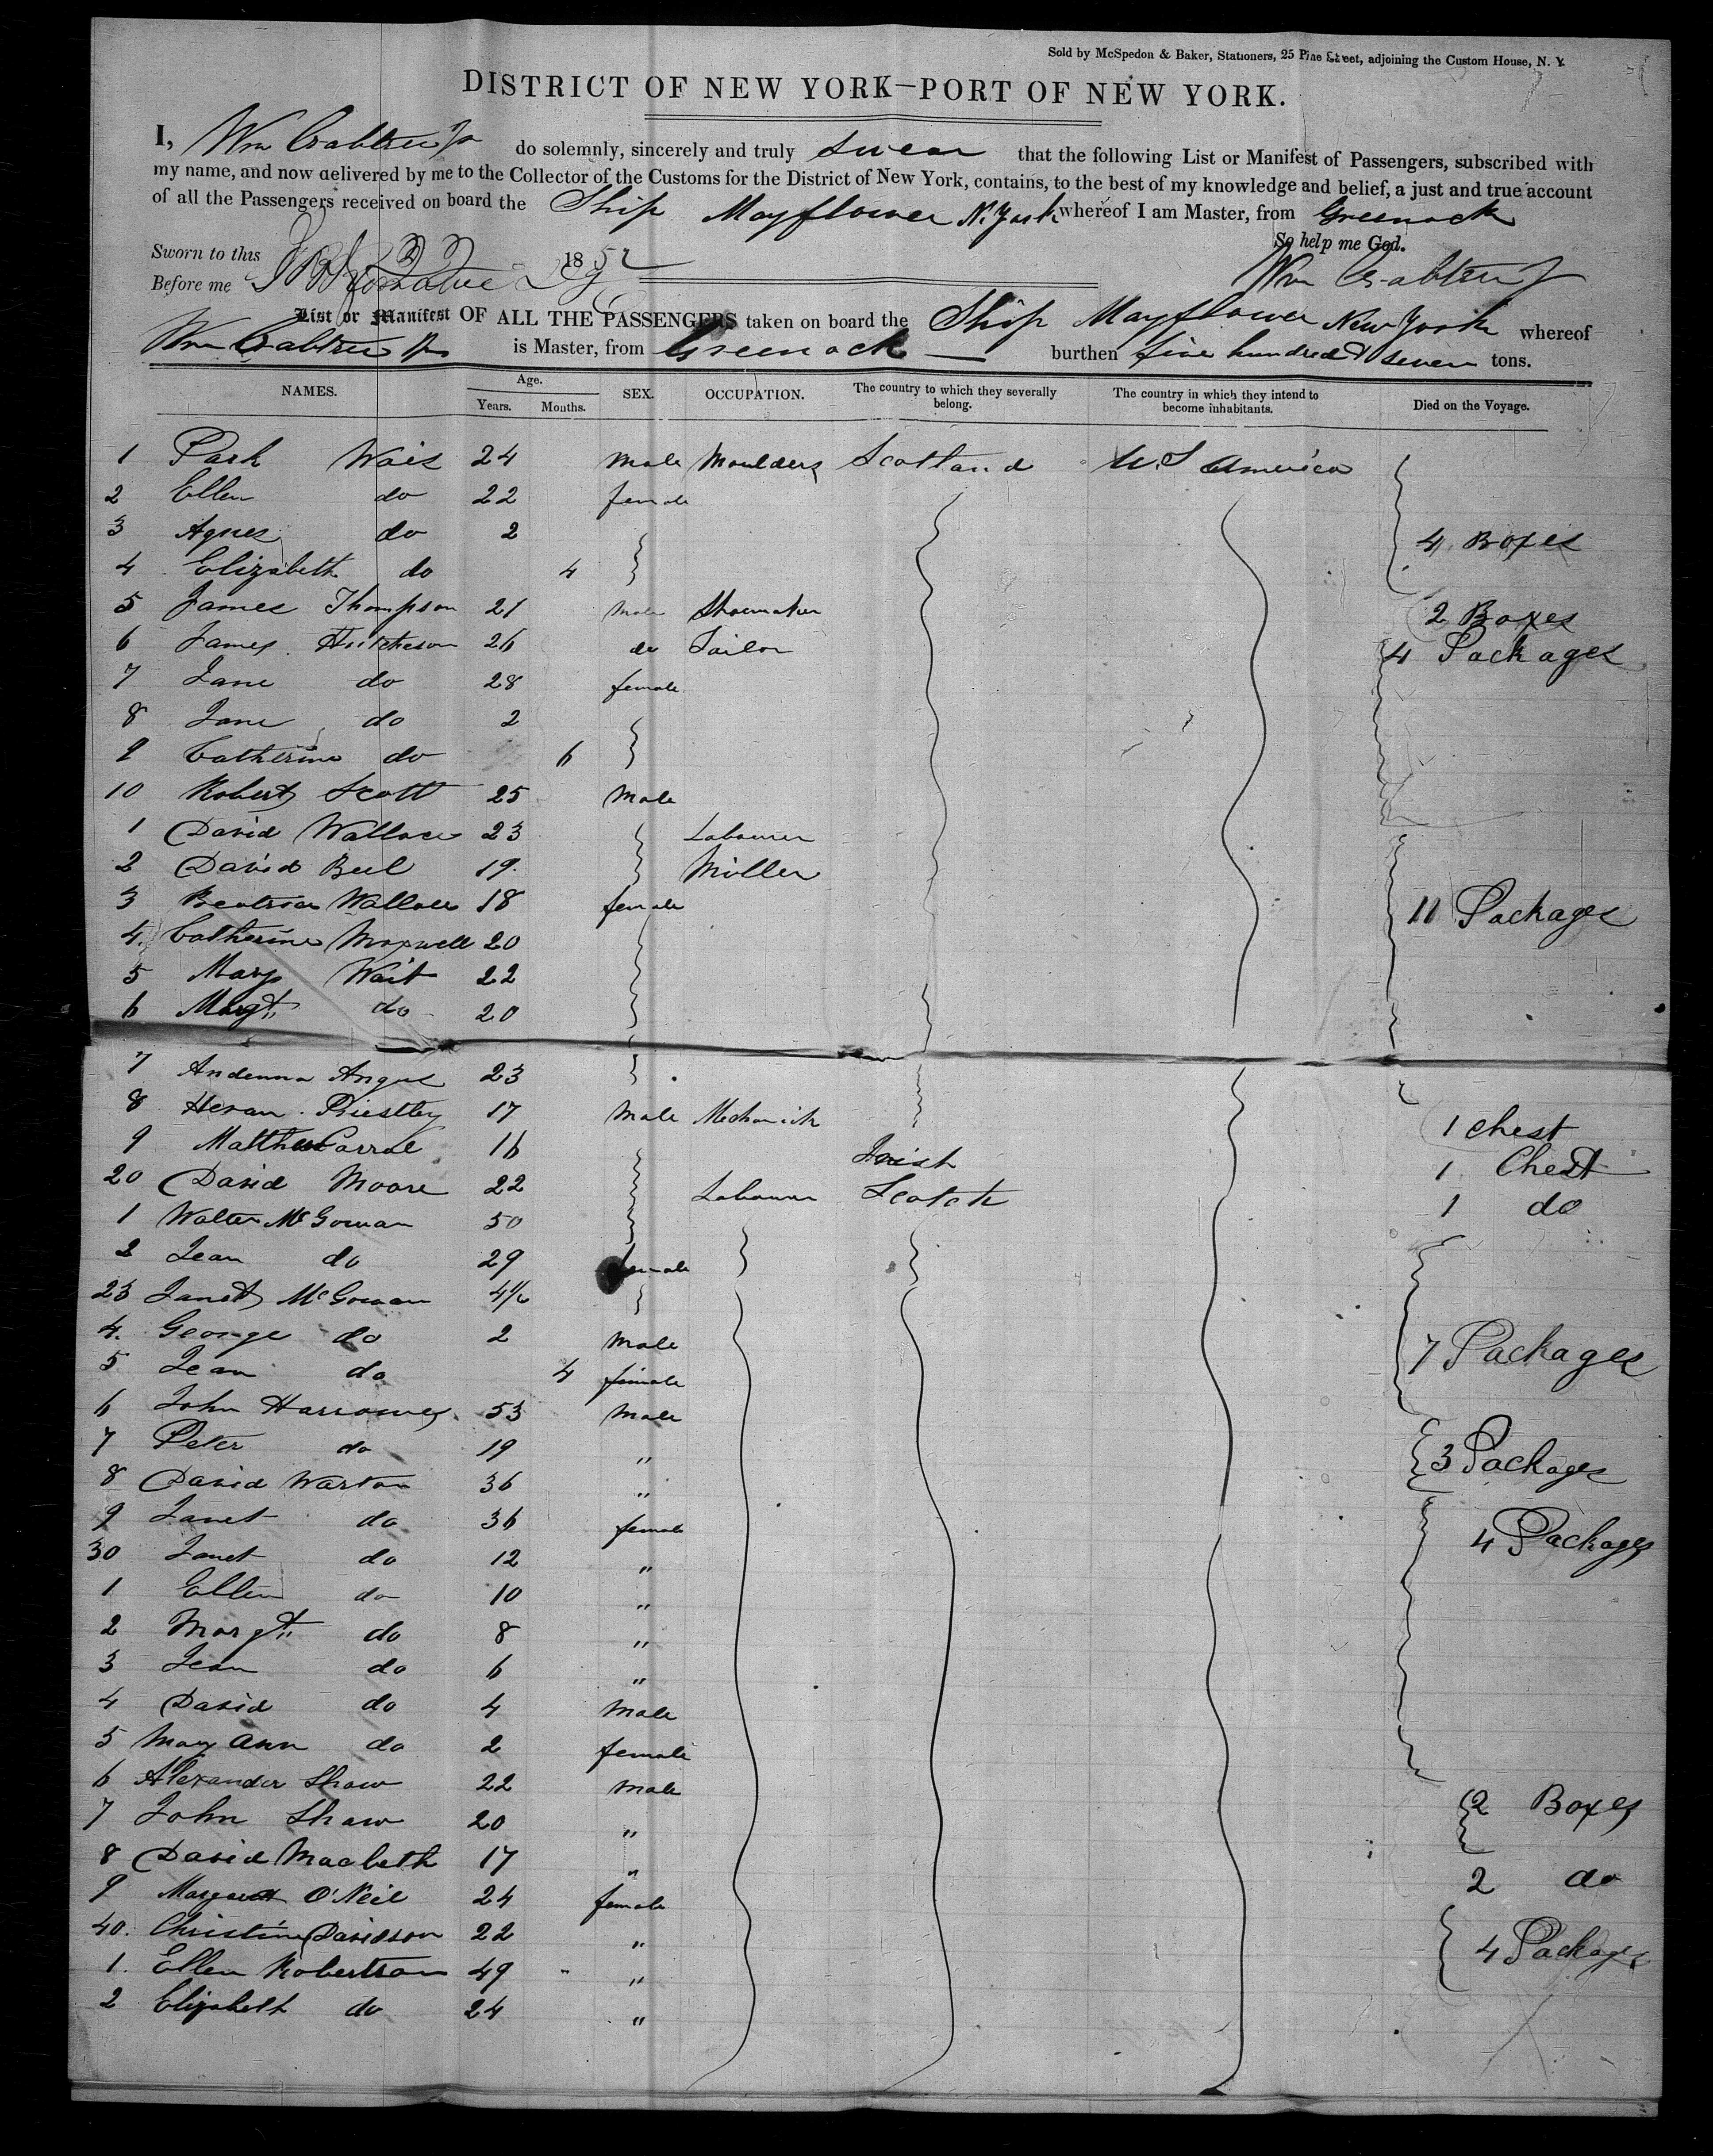 Sold by McSpedon & Baker, Stationers, 25 Pine Street, adjoining the Custom House, N. Y.
DISTRICT OF NEW YORK—PORT OF NEW YORK.
I, Wm Crabtree Jr do solemnly, sincerely and truly swear that the following List or Manifest of Passengers, subscribed with
my name, and now delivered by me to the Collector of the Customs for the District of New York, contains, to the best of my knowledge and belief, a just and true account
of all the Passengers received on board the Ship Mayflower N. York whereof I am Master, from Greenock
So help me God.
Sworn to this 1852
Before me
Wm Crabtree Jr
List or Manifest OF ALL THE PASSENGERS taken on board the Ship Mayflower New York whereof
Wm Crabtree Jr is Master, from Greenock burthen five hundred seven tons.
NAMES. Age. Years. Months. SEX. OCCUPATION. The country to which they severally belong. The country in which they intend to become inhabitants. Died on the Voyage.
1 Park Wais 24 Male Moulders Scotland U.S America
2 Ellen do 22 female
3 Agnes do 2 4 Boxes
4 Elizabeth do 4
5 James Thompson 21 Male Shoemaker 2 Boxes
6 James Hutcheson 26 do Tailor 4 Packages
7 Jane do 28 female
8 Jane do 2
9 Catherine do 6
10 Robert Scott 25 Male
1 David Wallace 23 Labourer
2 David Beel 19 Miller
3 Beatrice Wallace 18 female 11 Packages
4. Catherine Maxwell 20
5 Mary Wait 22
6 Margt do 20
7 Angus 23
8 Priestley 17 Male Mechanick 1 Chest
9 Matthew Carrol 16 Irish 1 Chest
20 David Moore 22 Labourer Scotch 1 do
1 Walter McGowan 50
2 Jean do 29 female
23 Janet McGowan 4½
4. George do 2 Male 7 Packages
5 Jean do 4 female
6 John Harrower 53 Male
7 Peter do 19 " 3 Packages
8 David Warton 36 "
9 Janet do 36 female 4 Packages
30 Janet do 12 "
1 Ellen do 10 "
2 Margt do 8 "
3 Jean do 6 "
4 David do 4 Male
5 Mary Ann do 2 female
6 Alexander Shaw 22 Male 2 Boxes
7 John Shaw 20 "
8 David Macbeth 17 " 2 do
9 Margaret O'Neil 24 female
40. Christina Davidson 22 " 4 Packages
1. Ellen Robertson 49 " "
2 Elizabeth do 24 "